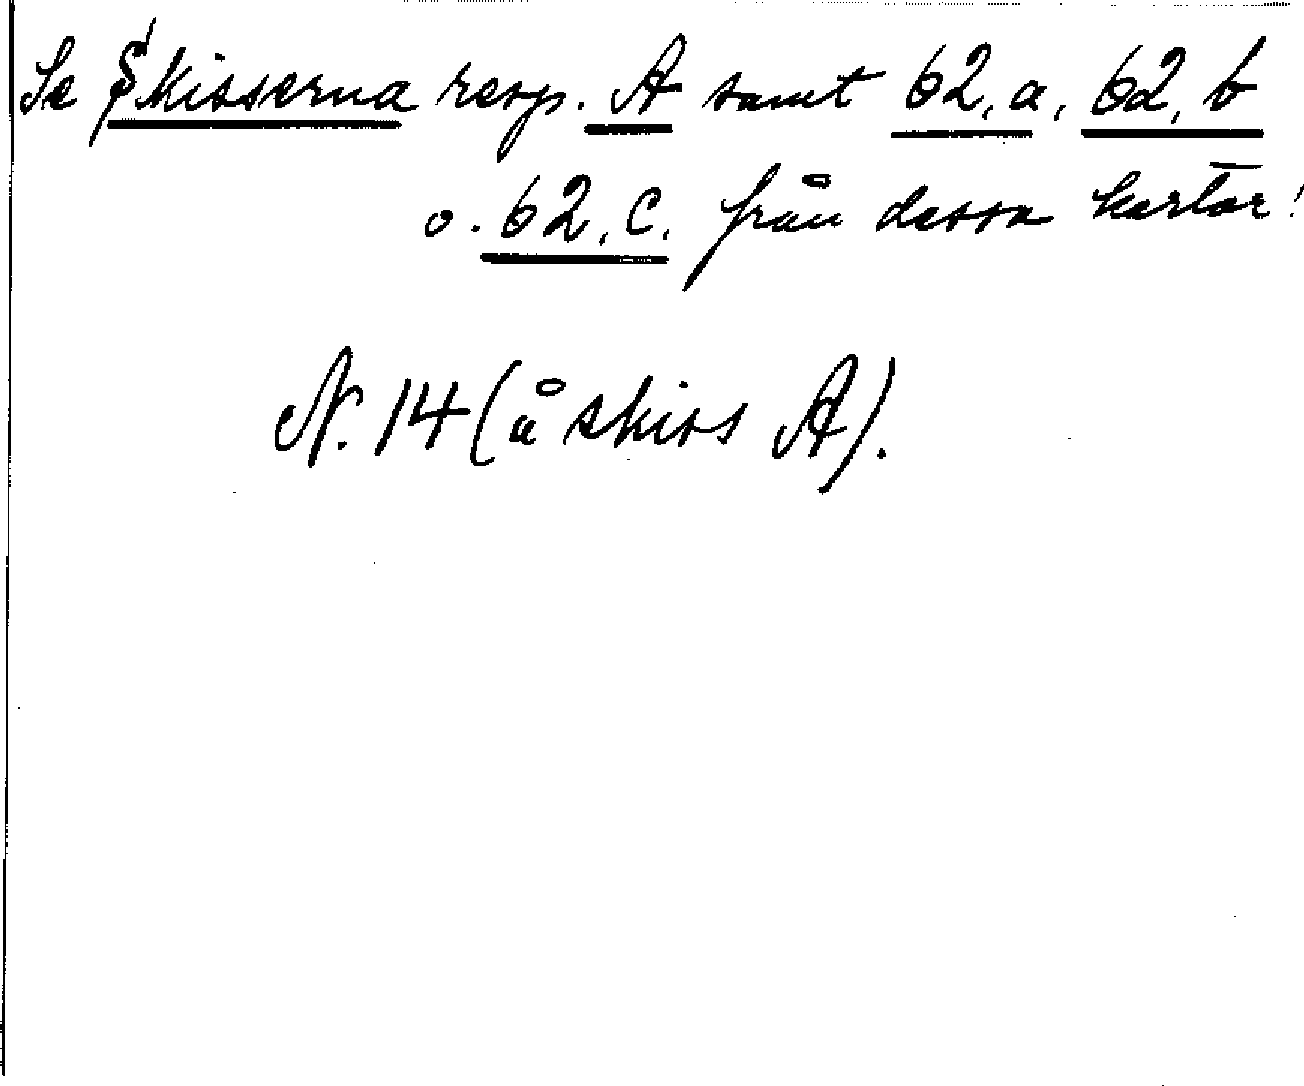 Se Skisserna resp. A samt 62, a, 62, b
o. 62, C. från dessa kartor!
N. 14 (å skiss A).